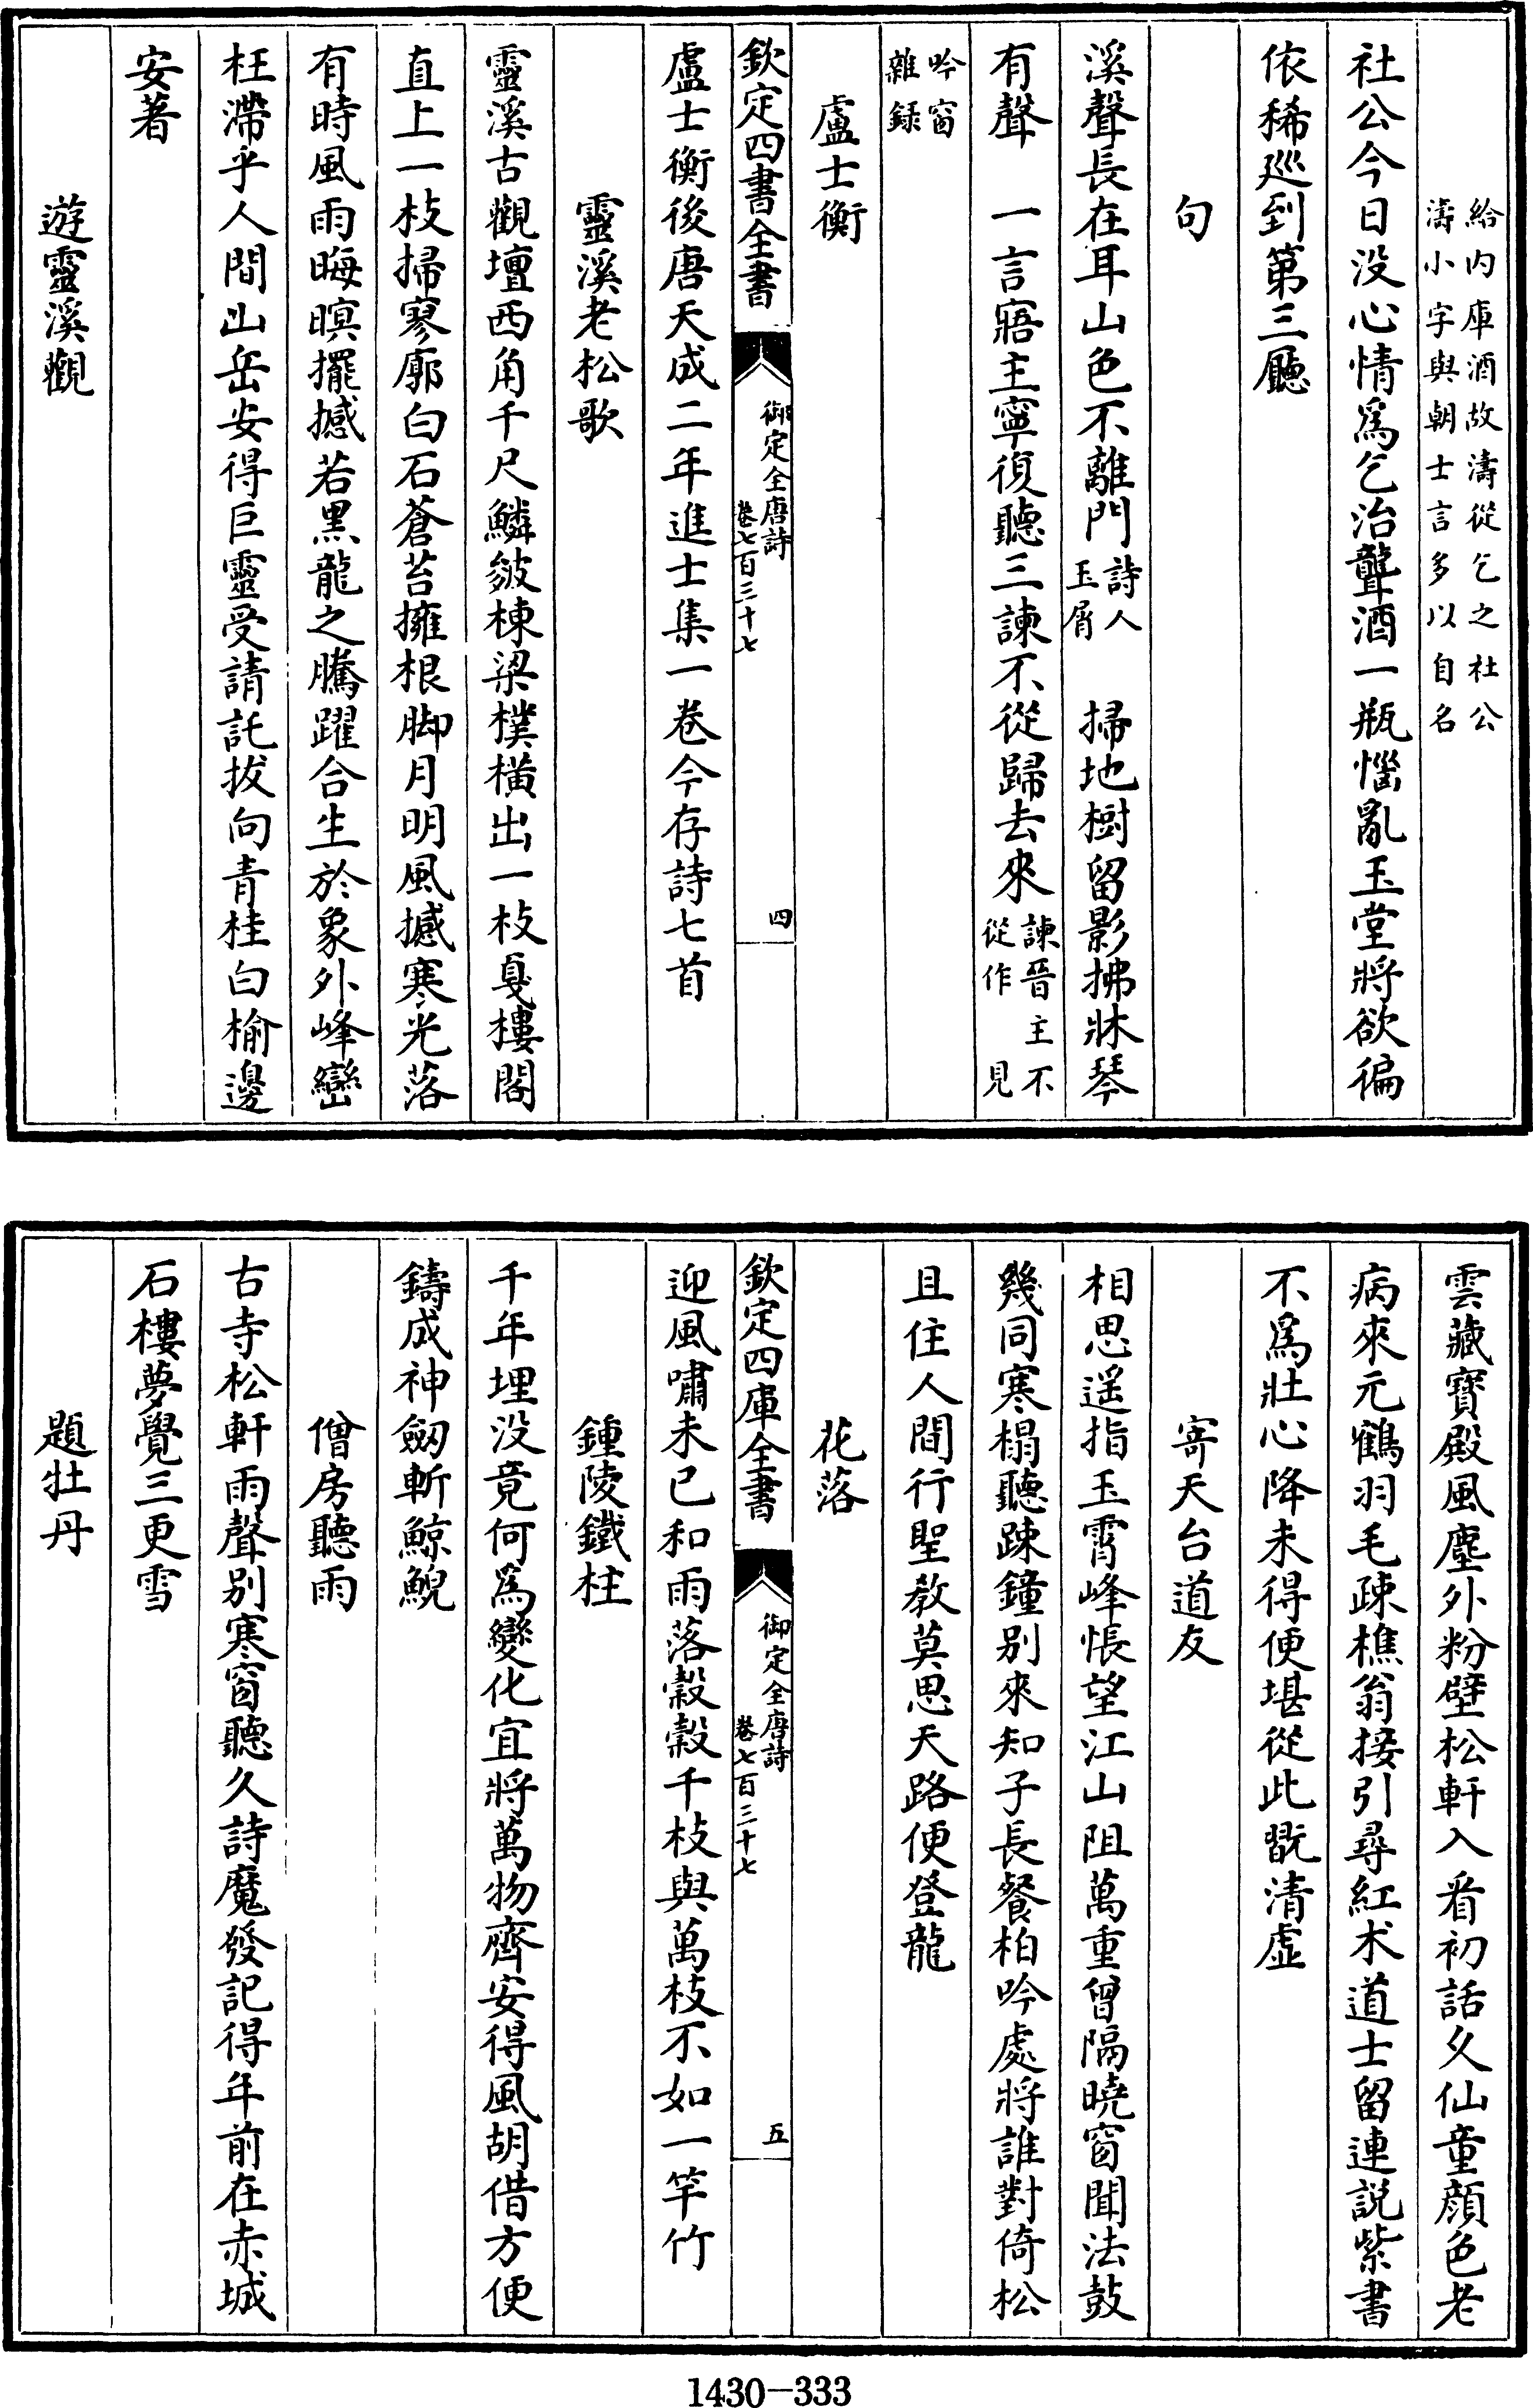 給内庫酒故濤從乞之社公
濤小字與朝士言多以自名
社公今日没心情爲乞治聾酒一瓶惱亂玉堂將欲徧
依稀廵到第三廳
句
溪聲長在耳山色不離門詩人玉屑　掃地樹留影拂牀琴
有聲　一言寤主寧復聽三諫不從歸去來諫晉主不從作　見
吟窗
雜録
盧士衡
欽定四書全書
御定全唐詩
卷七百三十七
四
盧士衡後唐天成二年進士集一卷今存詩七首
靈溪老松歌
靈溪古觀壇西角千尺鱗皴棟梁樸横出一枝戛樓閣
直上一枝掃寥廓白石蒼苔擁根脚月明風撼寒光落
有時風雨晦暝擺撼若黑龍之騰躍合生於象外峰巒
枉滯乎人間山岳安得巨靈受請託拔向青桂白榆邊
安著
遊靈溪觀
雲藏寶殿風塵外粉壁松軒入看初話久仙童顔色老
病來元鶴羽毛疎樵翁接引尋紅朮道士留連説紫書
不爲壯心降未得便堪從此翫清虚
寄天台道友
相思遥指玉霄峰悵望江山阻萬重曾隔曉窗聞法鼓
幾同寒榻聽疎鐘别來知子長餐柏吟處將誰對倚松
且住人間行聖教莫思天路便登龍
花落
欽定四庫全書
御定全唐詩
卷七百三十七
五
迎風嘯未已和雨落㲉㲉千枝與萬枝不如一竿竹
鍾陵鐵柱
千年埋没竟何爲變化宜將萬物齊安得風胡借方便
鑄成神劒斬鯨鯢
僧房聽雨
古寺松軒雨聲别寒窗聽久詩魔發記得年前在赤城
石樓夢覺三更雪
題牡丹
1430-333